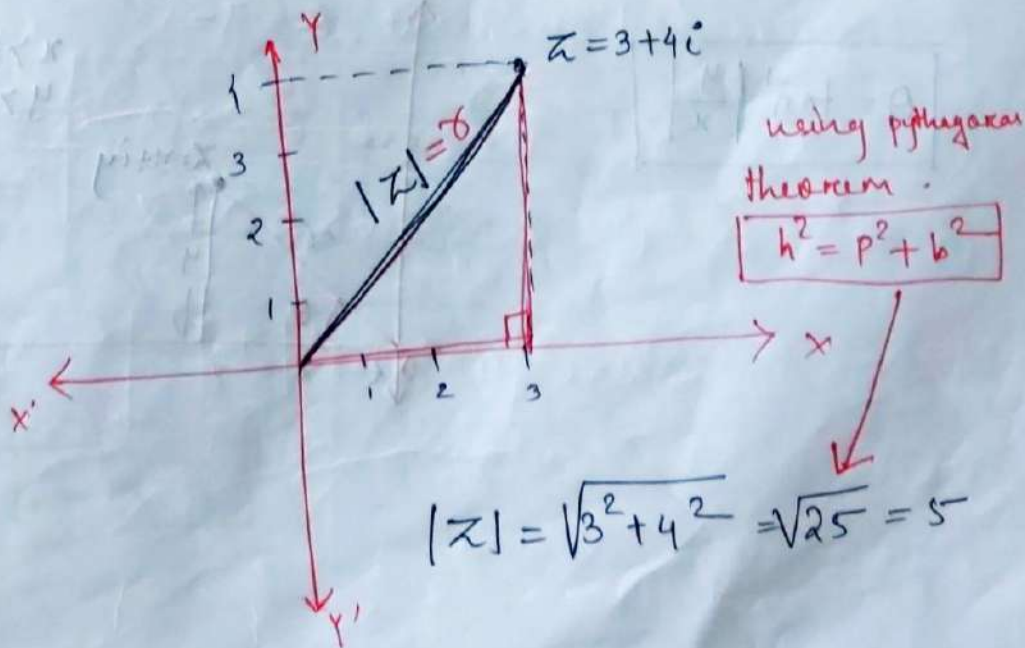 Y
z = 3+4i
3
2
1
|z| = r
using pythagoras
theorem .
h² = p² + b²
X
X'
1
2
3
|z| = √3²+4² = √25 = 5
Y'